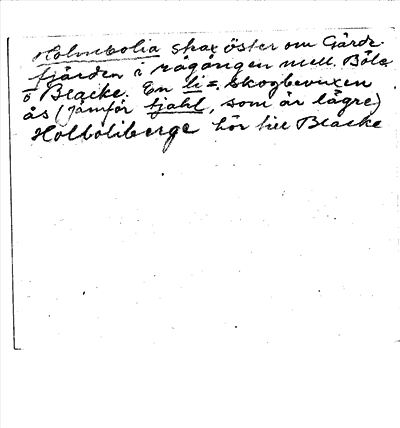 Holmbolia skax öster om Gärde-
fjärden i rågången mell. Böle
o Blacke. En li =. skogbevuxen
ås (jämför tjahl, som är lägre)
Holboliberge hör till Blacke